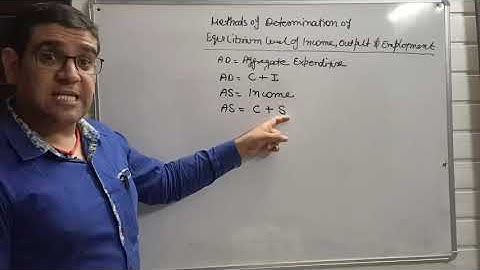 Methods of Determination of
Equilibrium level of Income, Output & Employment
AD = Aggregate Expenditure
AD = C + I
AS = Income
AS = C + S